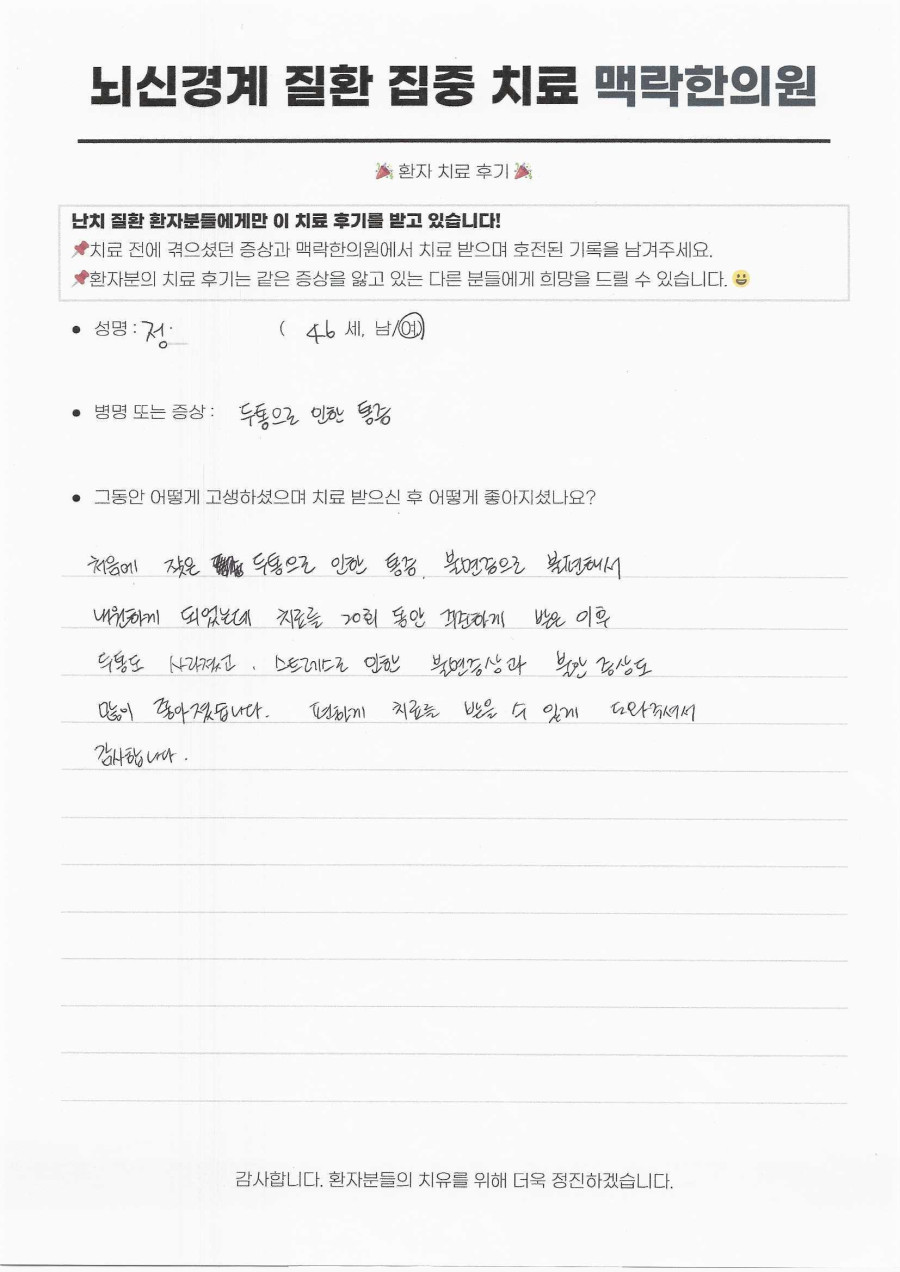 뇌신경계 질환 집중 치료 맥락한의원
환자 치료 후기
난치 질환 환자분들에게만 이 치료 후기를 받고 있습니다!
치료 전에 겪으셨던 증상과 맥락한의원에서 치료 받으며 호전된 기록을 남겨주세요.
환자분의 치료 후기는 같은 증상을 앓고 있는 다른 분들에게 희망을 드릴 수 있습니다.
• 성명 : 정 ( 46 세, 남/여)
• 병명 또는 증상 : 두통으로 인한 통증
• 그동안 어떻게 고생하셨으며 치료 받으신 후 어떻게 좋아지셨나요?
처음에 잦은 두통으로 인한 통증, 불면증으로 불편해서
내원하게 되었는데 치료를 20회 동안 꾸준하게 받은 이후
두통도 사라졌고, 스트레스로 인한 불면증상과 불안 증상도
많이 좋아졌습니다. 편하게 치료를 받을 수 있게 도와주셔서
감사합니다.
감사합니다. 환자분들의 치유를 위해 더욱 정진하겠습니다.